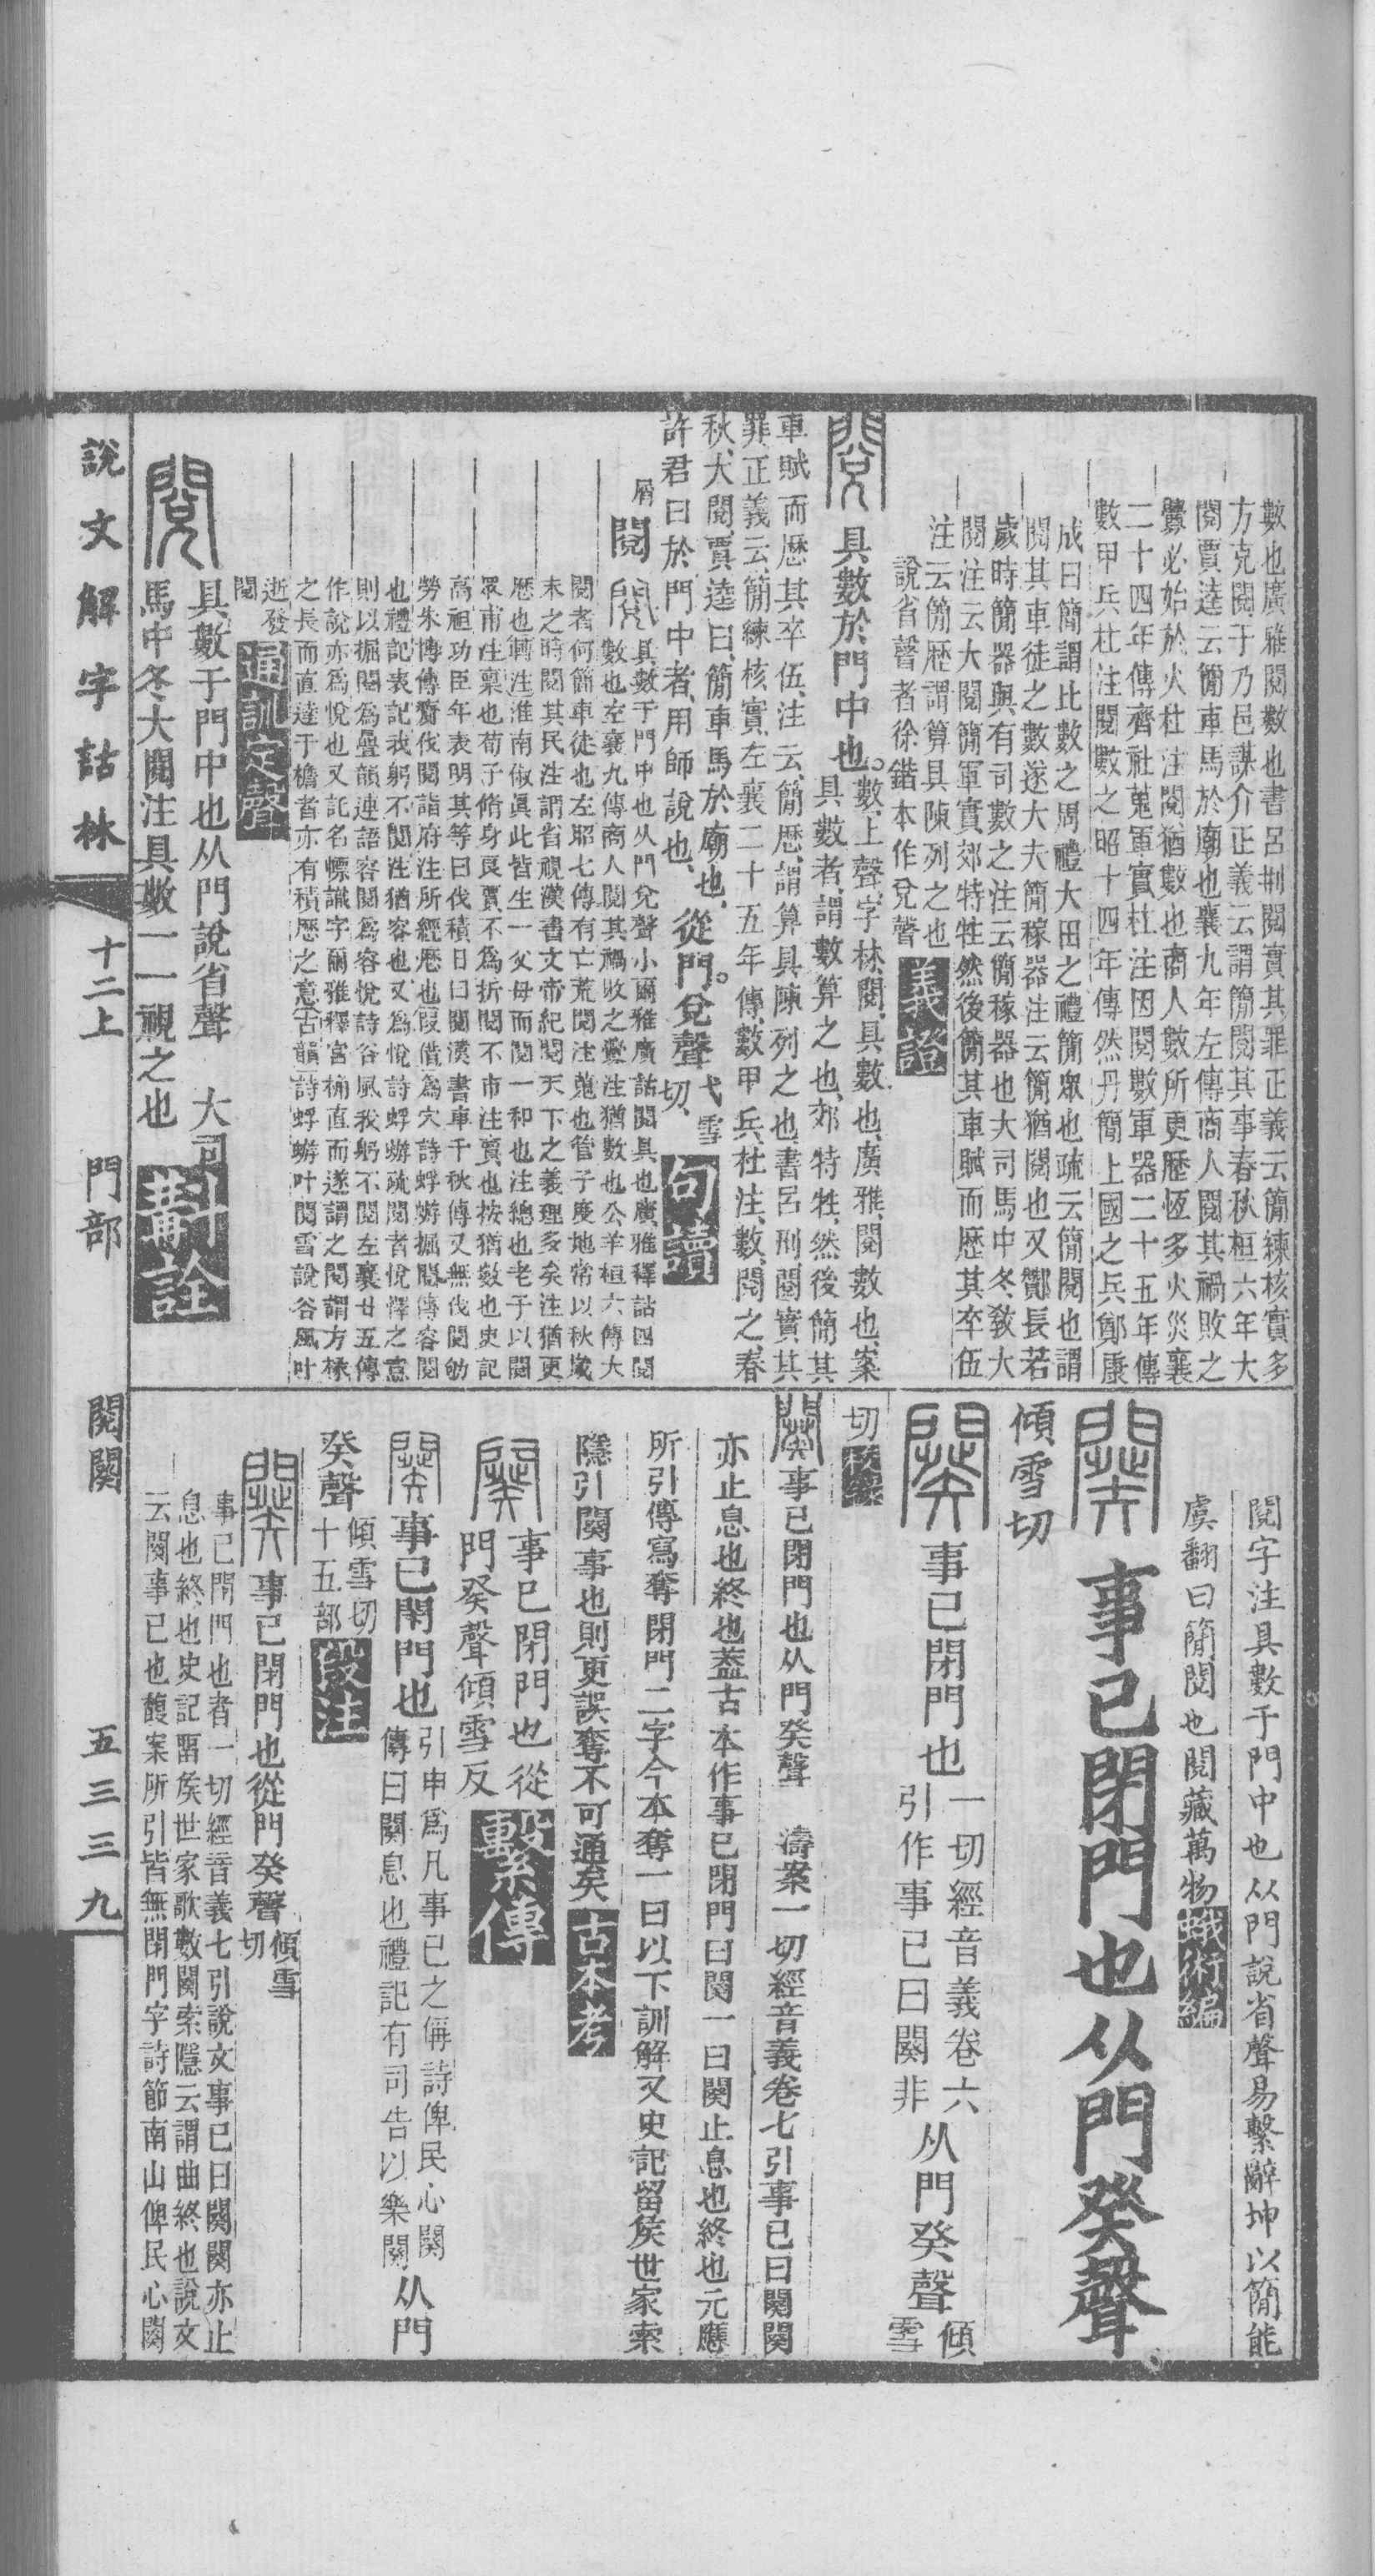 數也廣雅閱數也書呂刑閱實其罪正義云簡練核實多
方克閱于乃邑謀介正義云謂簡閱其事春秋桓六年大
閱賈逵云簡車馬於廟也襄九年左傳商人閱其禍敗之
釁必始於火杜注閱猶數也商人數所更歷恆多火災襄
二十四年傳齊社蒐軍實杜注因閱數軍器二十五年傳
數甲兵杜注閱數之昭十四年傳然丹簡上國之兵鄭康
成曰簡謂比數之周禮大田之禮簡眾也疏云簡閱也謂
閱其車徒之數遂大夫簡稼器注云簡猶閱也又酇長若
歲時簡器與有司數之注云簡稼器也大司馬中冬教大
閱注云大閱簡軍實郊特牲然後簡其車賦而歷其卒伍
注云簡歷謂算具陳列之也
說省聲者徐鍇本作兌聲 義證
具數於門中也。數、上聲、字林、閱、具數也、廣雅、閱、數也、案
具數者、謂數算之也、郊特牲、然後簡其
車賦而歷其卒伍、注云、簡歷、謂算具陳列之也、書呂刑、閱實其
罪、正義云、簡練核實、左襄二十五年傳、數甲兵、杜注、數、閱之、春
秋、大閱、賈逵曰、簡車馬於廟也、從門。兌聲弋雪切、句讀
許君曰於門中者、用師說也、
屑 閱 具數于門中也从門兌聲小爾雅廣詁閱具也廣雅釋詁四閱
數也左襄九傳商人閱其禍敗之釁注猶數也公羊桓六傳大
閱者何簡車徒也左昭七傳有亡荒閱注蒐也管子度地常以秋歲
末之時閱其民注謂省視漢書文帝紀閱天下之義理多矣注猶更
歷也轉注淮南俶眞此皆生一父母而閱一和也注總也老子以閱
眾甫注稟也荀子脩身良賈不爲折閱不市注賣也按猶數也史記
高祖功臣年表明其等曰伐積日曰閱漢書車千秋傳又無伐閱功
勞朱博傳齎伐閱詣府注所經歷也假借爲穴詩蜉蝣掘閱傳容閱
也禮記表記我躬不閱注猶容也又爲悅詩蜉蝣疏閱者悅懌之意
則以掘閱爲疊韻連語容閱爲容悅詩谷風我躬不閱左襄廿五傳
作說亦爲悅也又託名幖識字爾雅釋宮桷直而遂謂之閱謂方桷
之長而直達于檐者亦有積歷之意古韻詩蜉蝣叶閱雪說谷風叶
逝發
閱 通訓定聲
具數于門中也从門說省聲 大司
馬中冬大閱注具數一一視之也 斠詮
閱字注具數于門中也从門說省聲易繫辭坤以簡能
虞翻曰簡閱也閱藏萬物 蛾術編
事已閉門也从門癸聲
傾雪切
事已閉門也一切經音義卷六引作事已曰闋非从門癸聲傾雪
切 校錄
事已閉門也从門癸聲 濤案一切經音義卷七引事已曰闋闋
亦止息也終也葢古本作事已閉門曰闋一曰闋止息也終也元應
所引傳寫奪閉門二字今本奪一曰以下訓解又史記留矦世家索
隱引闋事也則更誤奪不可通矣 古本考
事已閉門也從
門癸聲傾雪反 繫傳
事已閉門也引申爲凡事已之偁詩俾民心闋傳曰闋息也禮記有司告以樂闋从門
癸聲傾雪切十五部 段注
事已閉門也從門癸聲傾雪切
事已閉門也者一切經音義七引說文事已曰闋闋亦止
息也終也史記畱矦世家歌數闋索隱云謂曲終也說文
云闋事已也馥案所引皆無閉門字詩節南山俾民心闋
說文解字詁林 十二上 門部 閱闋 五三三九